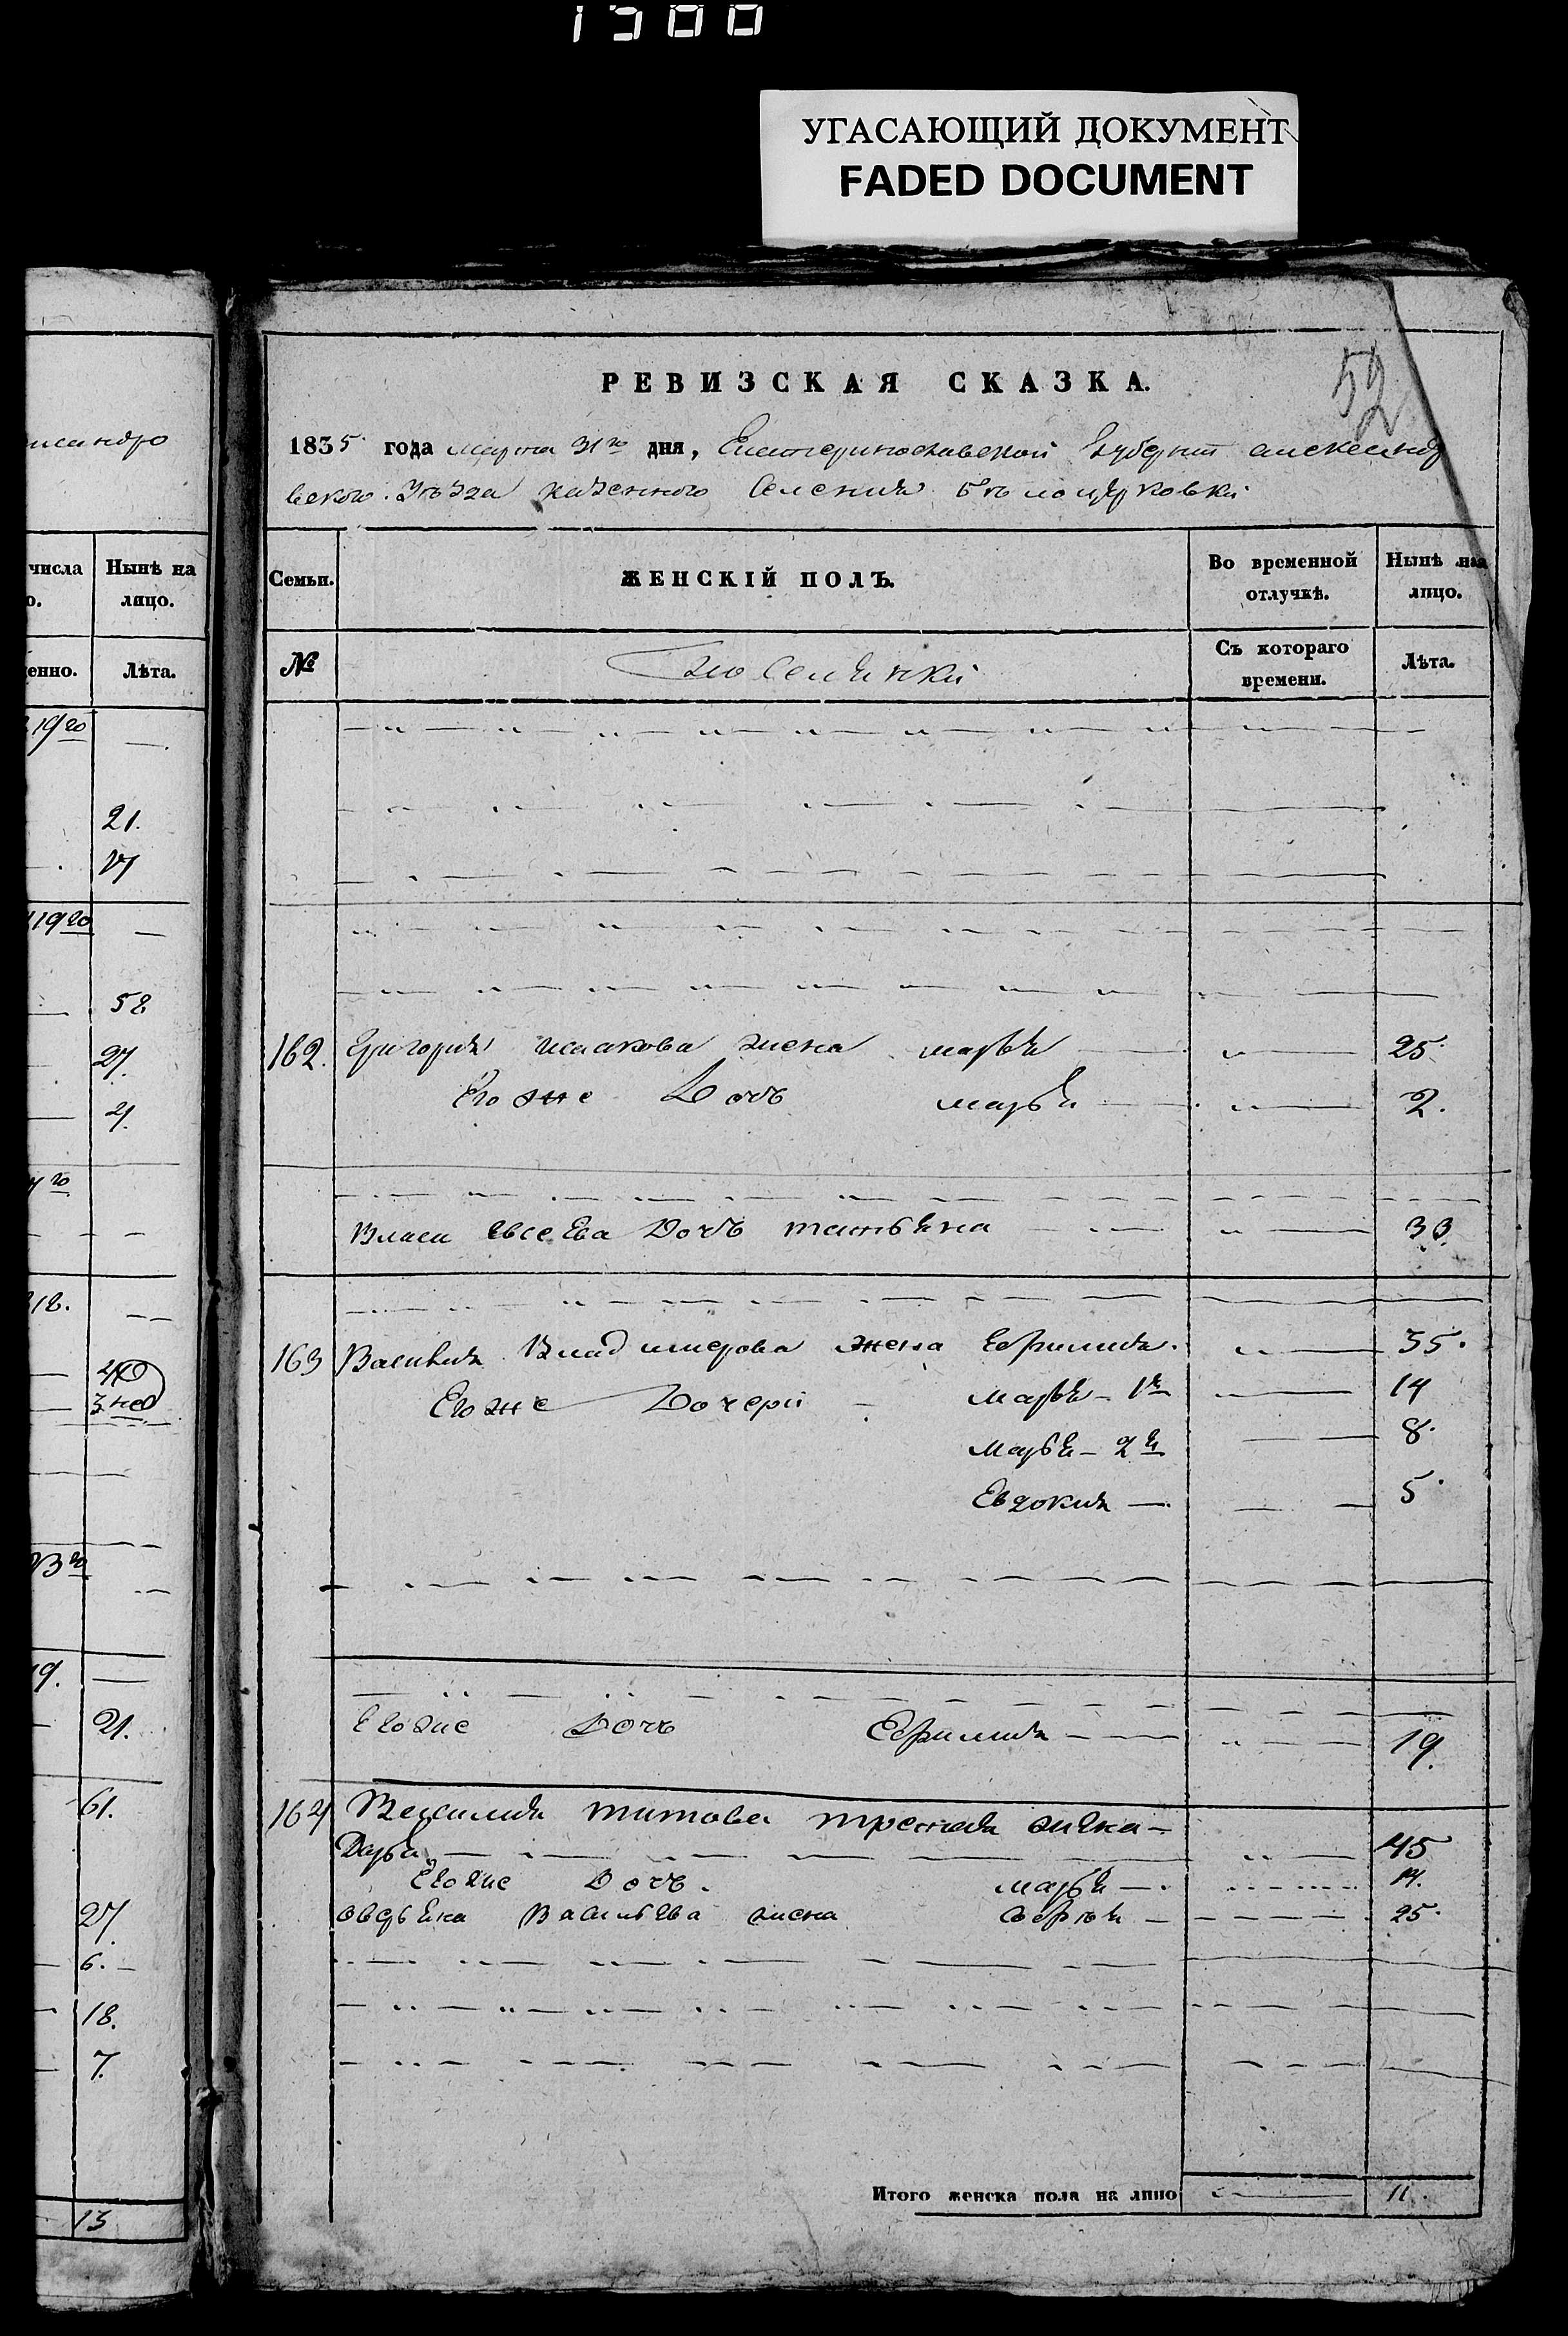 1500
УГАСАЮЩИЙ ДОКУМЕНТ
FADED DOCUMENT
52
РЕВИЗСКАЯ СКАЗКА.
1835 года марта 31го дня, Екатеринославской Губернии александр
вского Уѣзда казенного Селения Бѣлоцерковки
числа
Нынѣ на лицо.
Лѣта.
19го
21.
17
19го
58
27.
4.
18.
3 нед
23го
19.
21.
61.
27.
6.
18.
7.
13
Семьи.
ЖЕНСКІЙ ПОЛЪ.
Во временной отлучкѣ.
Нынѣ на лицо.
№
Съ котораго времени.
Лѣта.
162. Григория Исакова жена марья 25
Его же Дочь марья 2.
Власа евсеева Дочь татьяна 30.
163 Василия Владимерова жена Ефимия. 35.
Его же Дочери марья 1я 14
марья 2я 8.
Евдокия 5.
Его же Дочь Ефимия 19.
164 Василия титова третяя жена
Дарья 45
Его же Дочь. марья 14.
Васильева жена 25.
Итого женска пола на лицо 11.